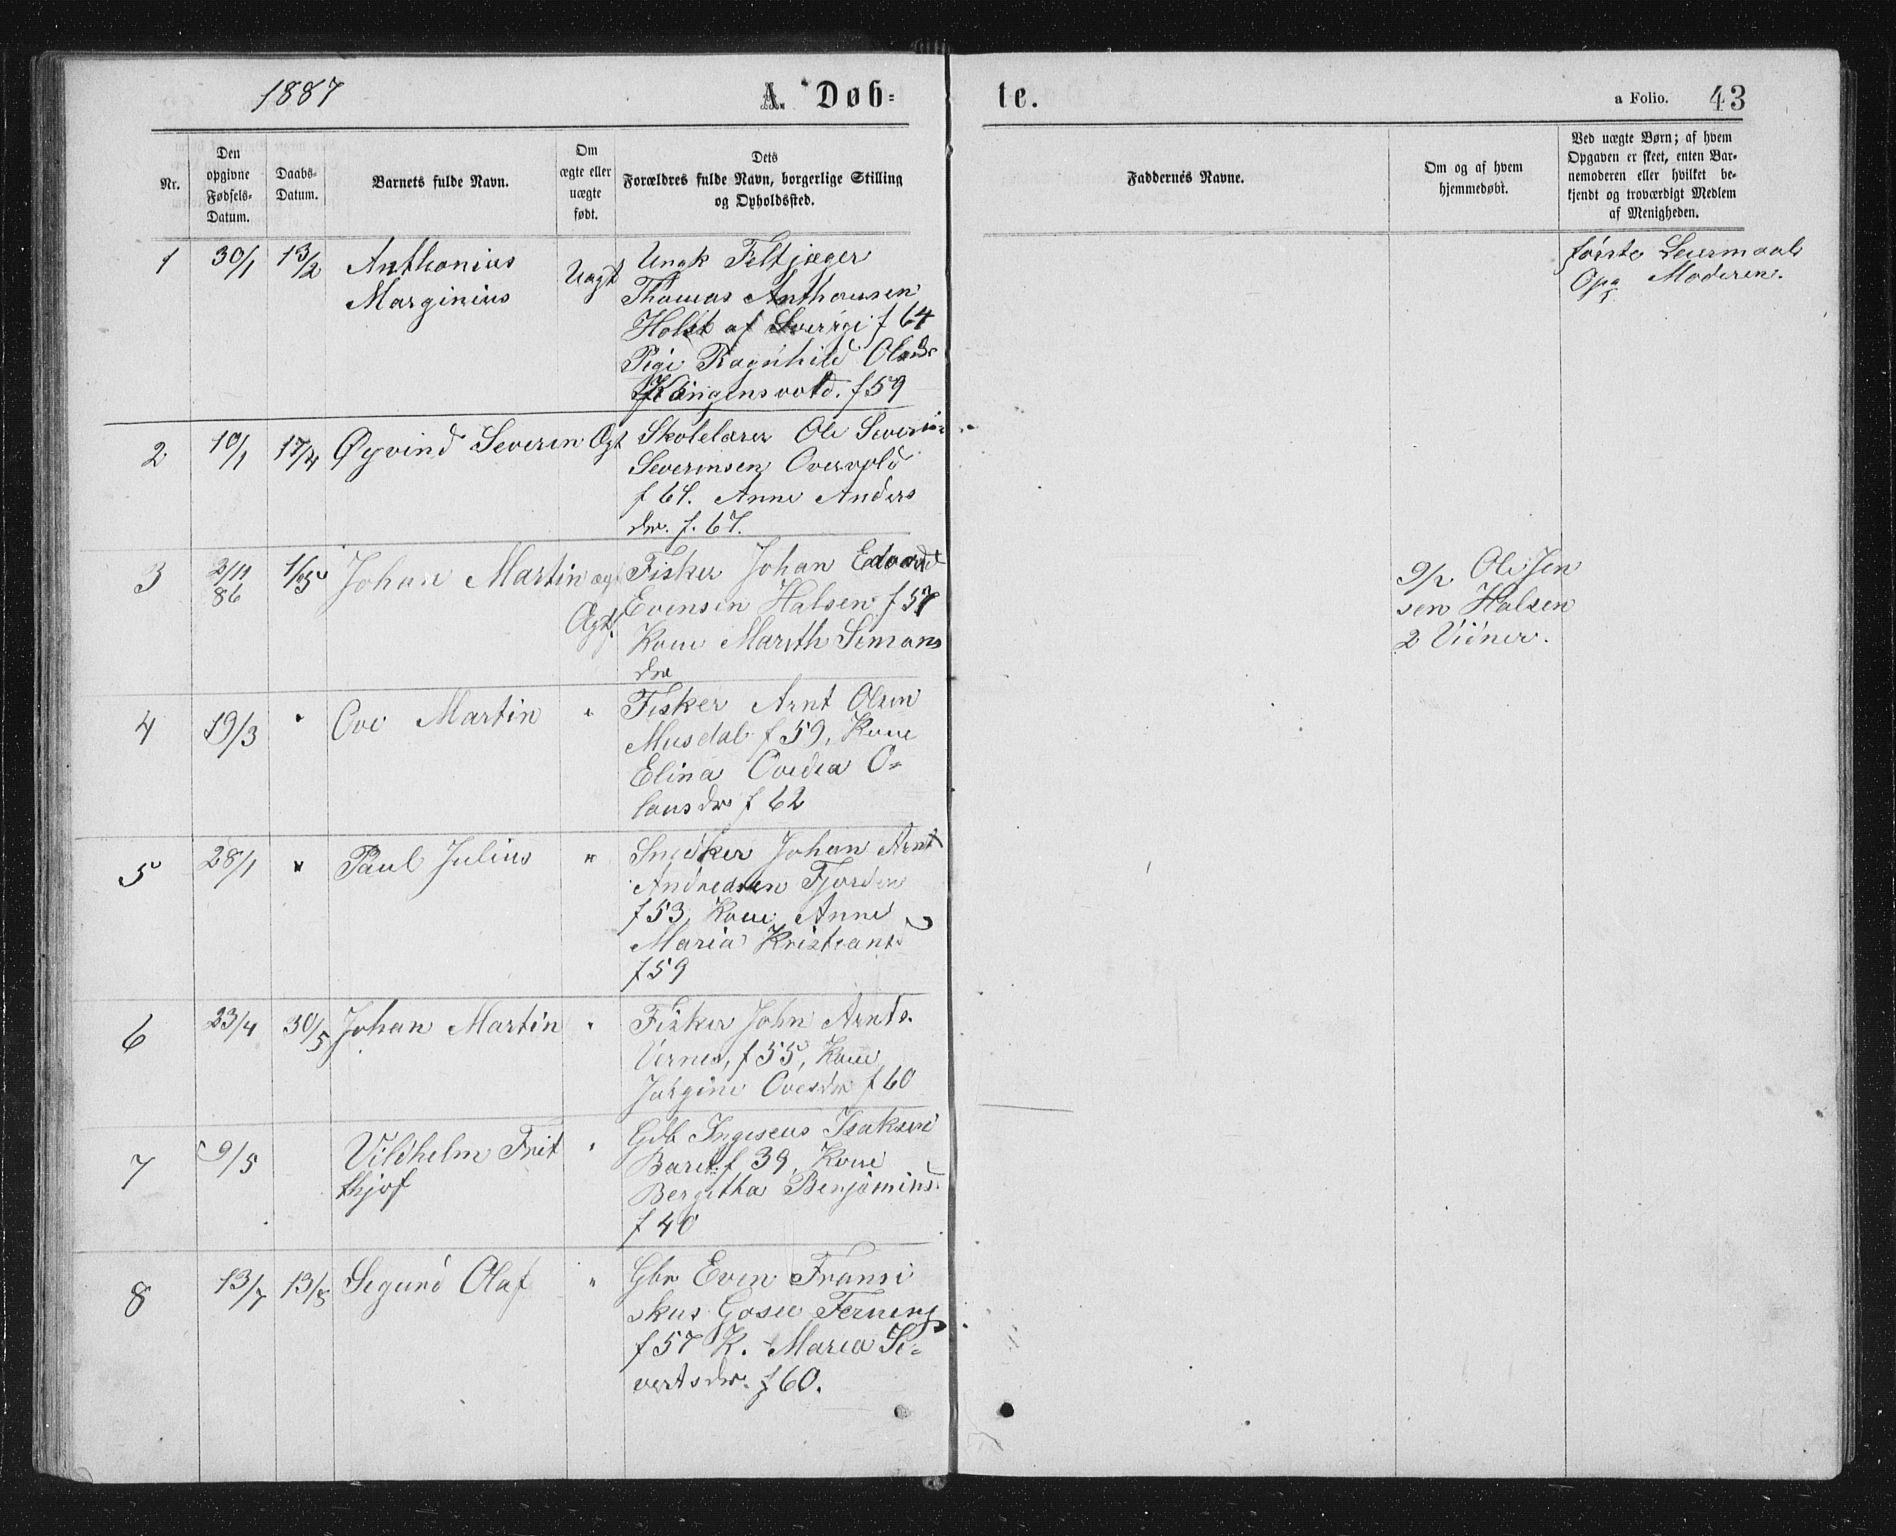 1887 A. Døb= te. a Folio. 43
Nr.
Den opgivne Fødsels-Datum.
Daabs-Datum.
Barnets fulde Navn.
Om ægte eller uægte født.
Dets Forældres fulde Navn, borgerlige Stilling og Opholdssted.
Faddernes Navne.
Om og af hvem hjemmedøbt.
Ved uægte Børn; af hvem Opgaven er skeet, enten Barnemoderen eller hvilket bekjendt og troværdigt Medlem af Menigheden.
1 30/1 13/2 Anthonius Uægt Ungk Feltjæger første Leiermaal
Marginius Thomas Anthonsen Opg Moderen.
Holst af Sverige f 64
Pige Ragnhild Olsdr
f 59
2 10/1 17/4 Øyvind Severin Ægt Skolelærer Ole Severin
Severinsen Overvold
f 64. Anne Anders
dr. f. 67.
3 2/11 86 1/5 Johan Martin Ægt Fisker Johan Edvard 9/2 Ole Jen
Evensen Halsen f 57 sen Halsen
Kone Marith Simons 2 Vidner.
dr
4 19/3 " Ove Martin " Fisker Arnt Olsen
Musdal f 59, Kone
Elina Ovedia O=
lausdr f 62
5 28/1 " Paul Julius " Snedker Johan Arnt
Andreasen Fjorden
f 53, Kone Anne
Maria Kristiansd
f 59
6 23/4 30/5 Johan Martin " Fisker John Arnts.
Vernes, f 55, Kone
Jørgine Ovesdr f 60
7 9/5 Vildhelm Frit " Gdb Isaksen
thjof f 39, Kone
Bergitha Benjaminsd.
f 40
8 13/7 13/8 Sigurd Olaf " Gbr Even Fransi
skus
f 57 K. Maria Si=
vertsdr. f 60.